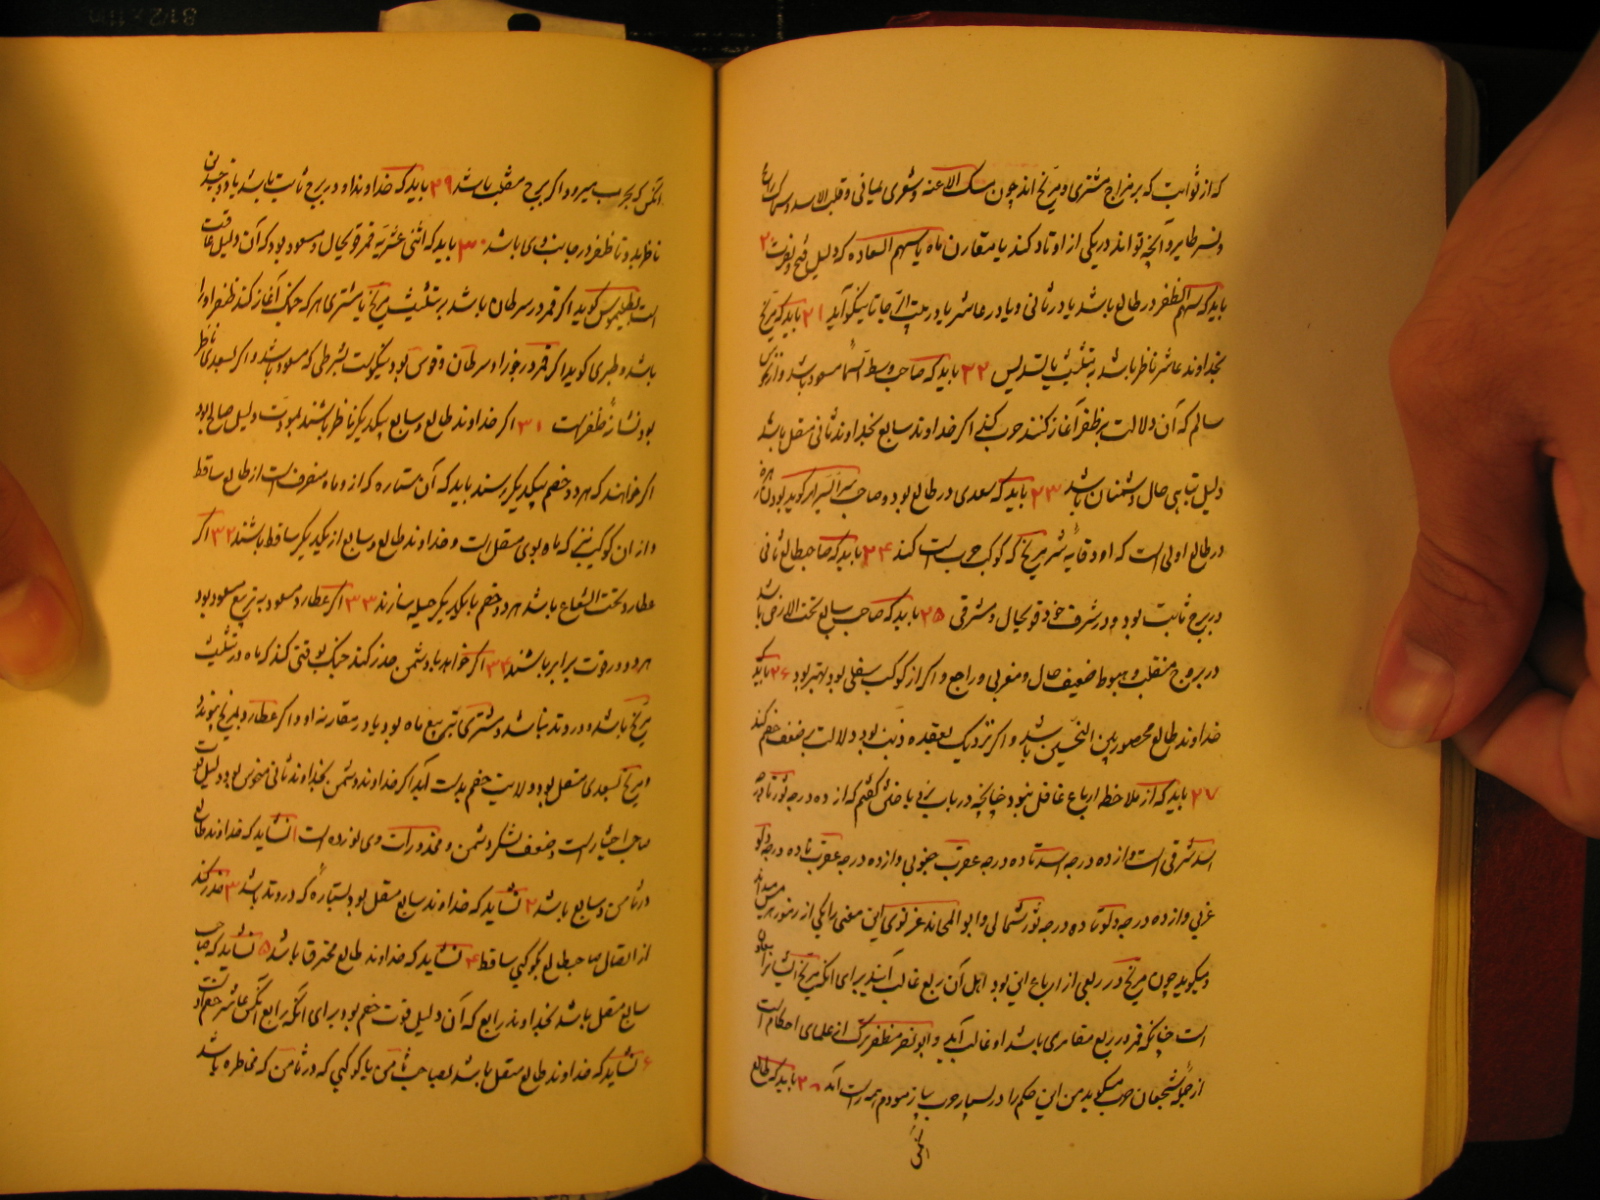 که از ثوابت که بر مزاج مشتری و مریخ اند چون ممسک الاعنه و شعری یمانی و قلب الاسد و سماک رامح
و نسر طایر و آنچه تواند در یکی از اوتاد کند یا مقارن ماه یا سهم السعاده که دلیل فتح و نصرتست ۲۰
باید که سهم الظفر در طالع باشد یا در ثانی و یا در عاشر یا در بیت الرجا تا نیکو آید ۲۱ باید که مریخ
بخداوند عاشر ناظر باشد به تثلیث یا تسدیس ۲۲ باید که صاحب وسط السما مسعود باشد و از نحوس
سالم که آن دلالت بر ظفر آغاز کننده حرب کند اگر خداوند سابع بخداوند ثانی متصل باشد
دلیل تباهی حال دشمنان باشد ۲۳ باید که سعدی در طالع بود و صاحب سر السرایر کوید بودن زهره
در طالع اولی است که او دقایه شر مریخ که کوکب حرب است کند ۲۴ باید که صاحب طالع ثانی
در برج ثابت بود و در شرف خود قویحال و مشرقی ۲۵ باید که صاحب سابع تحت الارض باشد
در بروج منقلب و هبوط ضعیف حال و مغربی و راجع و اگر از کوکب سفلی بود بهتر بود ۲۶ باید که
خداوند طالع محصور بین النحسین باشد و اگر نزدیک بعقده ذنب بود دلالت بر ضعف خصم کند
۲۷ باید که از ملاحظه ارباع غافل نبود چنانچه در باب نرد باختن کفتم که از ده درجه ثور تا ده درجه
اسد شرقی است و از ده درجه اسد تا ده درجه عقرب جنوبی و از ده درجه عقرب تا ده درجه دلو
غربی و از ده درجه دلو تا ده درجه ثور شمالی و ابو المحامد غزنوی این معنی را یکی از رموز هرمس میداند
و میکوید چون مریخ در ربعی از ارباع این بود اهل آن ربع غالب آیند برای آنکه مریخ ایشانرا معاون
است چنانکه قمر در ربع مقامری باشد او غالب آید و ابو نصر مظفر ترک از علمای احکام است
از جمله شجعان حرب میکوید من این حکم را در بسیار حرب بیازمودم همه راست آمد ۲۸ باید که طالع
آنکس که بحرب میرود اگر برج منقلب باشد ۲۹ باید که خداوند او در برج ثابت باشد یا ذو جسدین
ناظر بدو تا ظفر در جانب وی باشد ۳۰ باید که اثنی عشریه قمر قویحال و مسعود بود که آن دلیل عاقبت
است بطلیموس کوید اگر قمر در سرطان باشد بر تثلیث مریخ یا مشتری هر که جنک آغاز کند ظفر او را
باشد و طبری کوید اگر قمر در جوزا و سرطان و قوس بود نیکوست بشرطی که مسعود باشد و اگر بسعدی ناظر
بود نشانه ظفر است ۳۱ اگر خداوند طالع و سابع بیکدیکر ناظر باشند بمودت دلیل صلح بود
اگر خواهند که هر دو خصم بیکدیکر رسند باید که آن ستاره که از و ماه منصرف است از طالع ساقط
و از ان کوکب نیز که ماه بوی متصل است و خداوند طالع و سابع از یکدیکر ساقط باشند ۳۲ اگر
عطارد تحت الشعاع باشد هر دو خصم با یکدیکر حیله سازند ۳۳ اگر عطارد مسعود به تربیع مسعود بود
هر دو در قوت برابر باشند ۳۴ اگر خواهد با دشمن حذر کند جنک بوقتی کند که ماه در تثلیث
مریخ باشد و در وتد نباشد و مشتری بتربیع ماه بود یا در مقارنه او و اگر عطارد بمریخ پیوندد
و مریخ بسعدی متصل بود ولایت خصم بدست آید اگر خداوند دشمن بخداوند ثانی منحوس بود دلیل قوت
صاحب اختیار است و ضعف لشکر دشمن و محذورات وی نوزده است ۱ نشاید که خداوند طالع
در ثامن و سابع باشد ۲ نشاید که خداوند سابع متصل بود بستاره که در وتد باشد ۳ حذر کند
از اتصال صاحب طالع بکوکبی ساقط ۴ نشاید که خداوند طالع محترق باشد ۵ نشاید که صاحب
سابع متصل باشد بخداوند رابع که آن دلیل قوت خصم بود برای آنکه رابع آنکس عاشر خصم اوست
۶ نشاید که خداوند طالع متصل باشد بصاحب ثامن یا کوکبی که در ثامن که مخاطره باشد